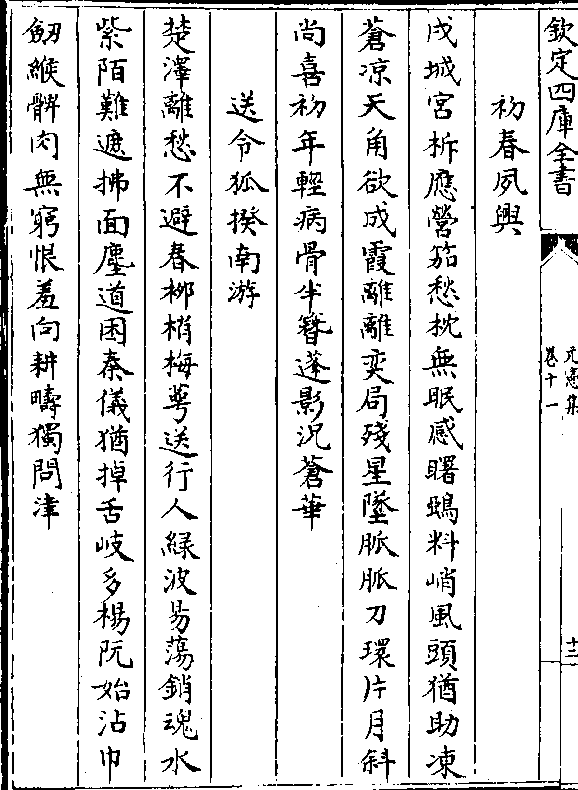 欽定四庫全書
元憲集
卷十一
十三
初春夙興
戍城宮柝應營笳愁枕無眠感曙鵶料峭風頭猶助凍
蒼凉天角欲成霞離離奕局殘星墜脈脈刀環片月斜
尚喜初年輕病骨半簪蓬影況蒼華
送令狐揆南游
楚澤離愁不避春栁梢梅萼送行人綠波易蕩銷魂水
紫陌難遮拂面塵道困秦儀猶掉舌岐多楊阮始沾巾
劒緱髀肉無窮恨羞向耕疇獨問津